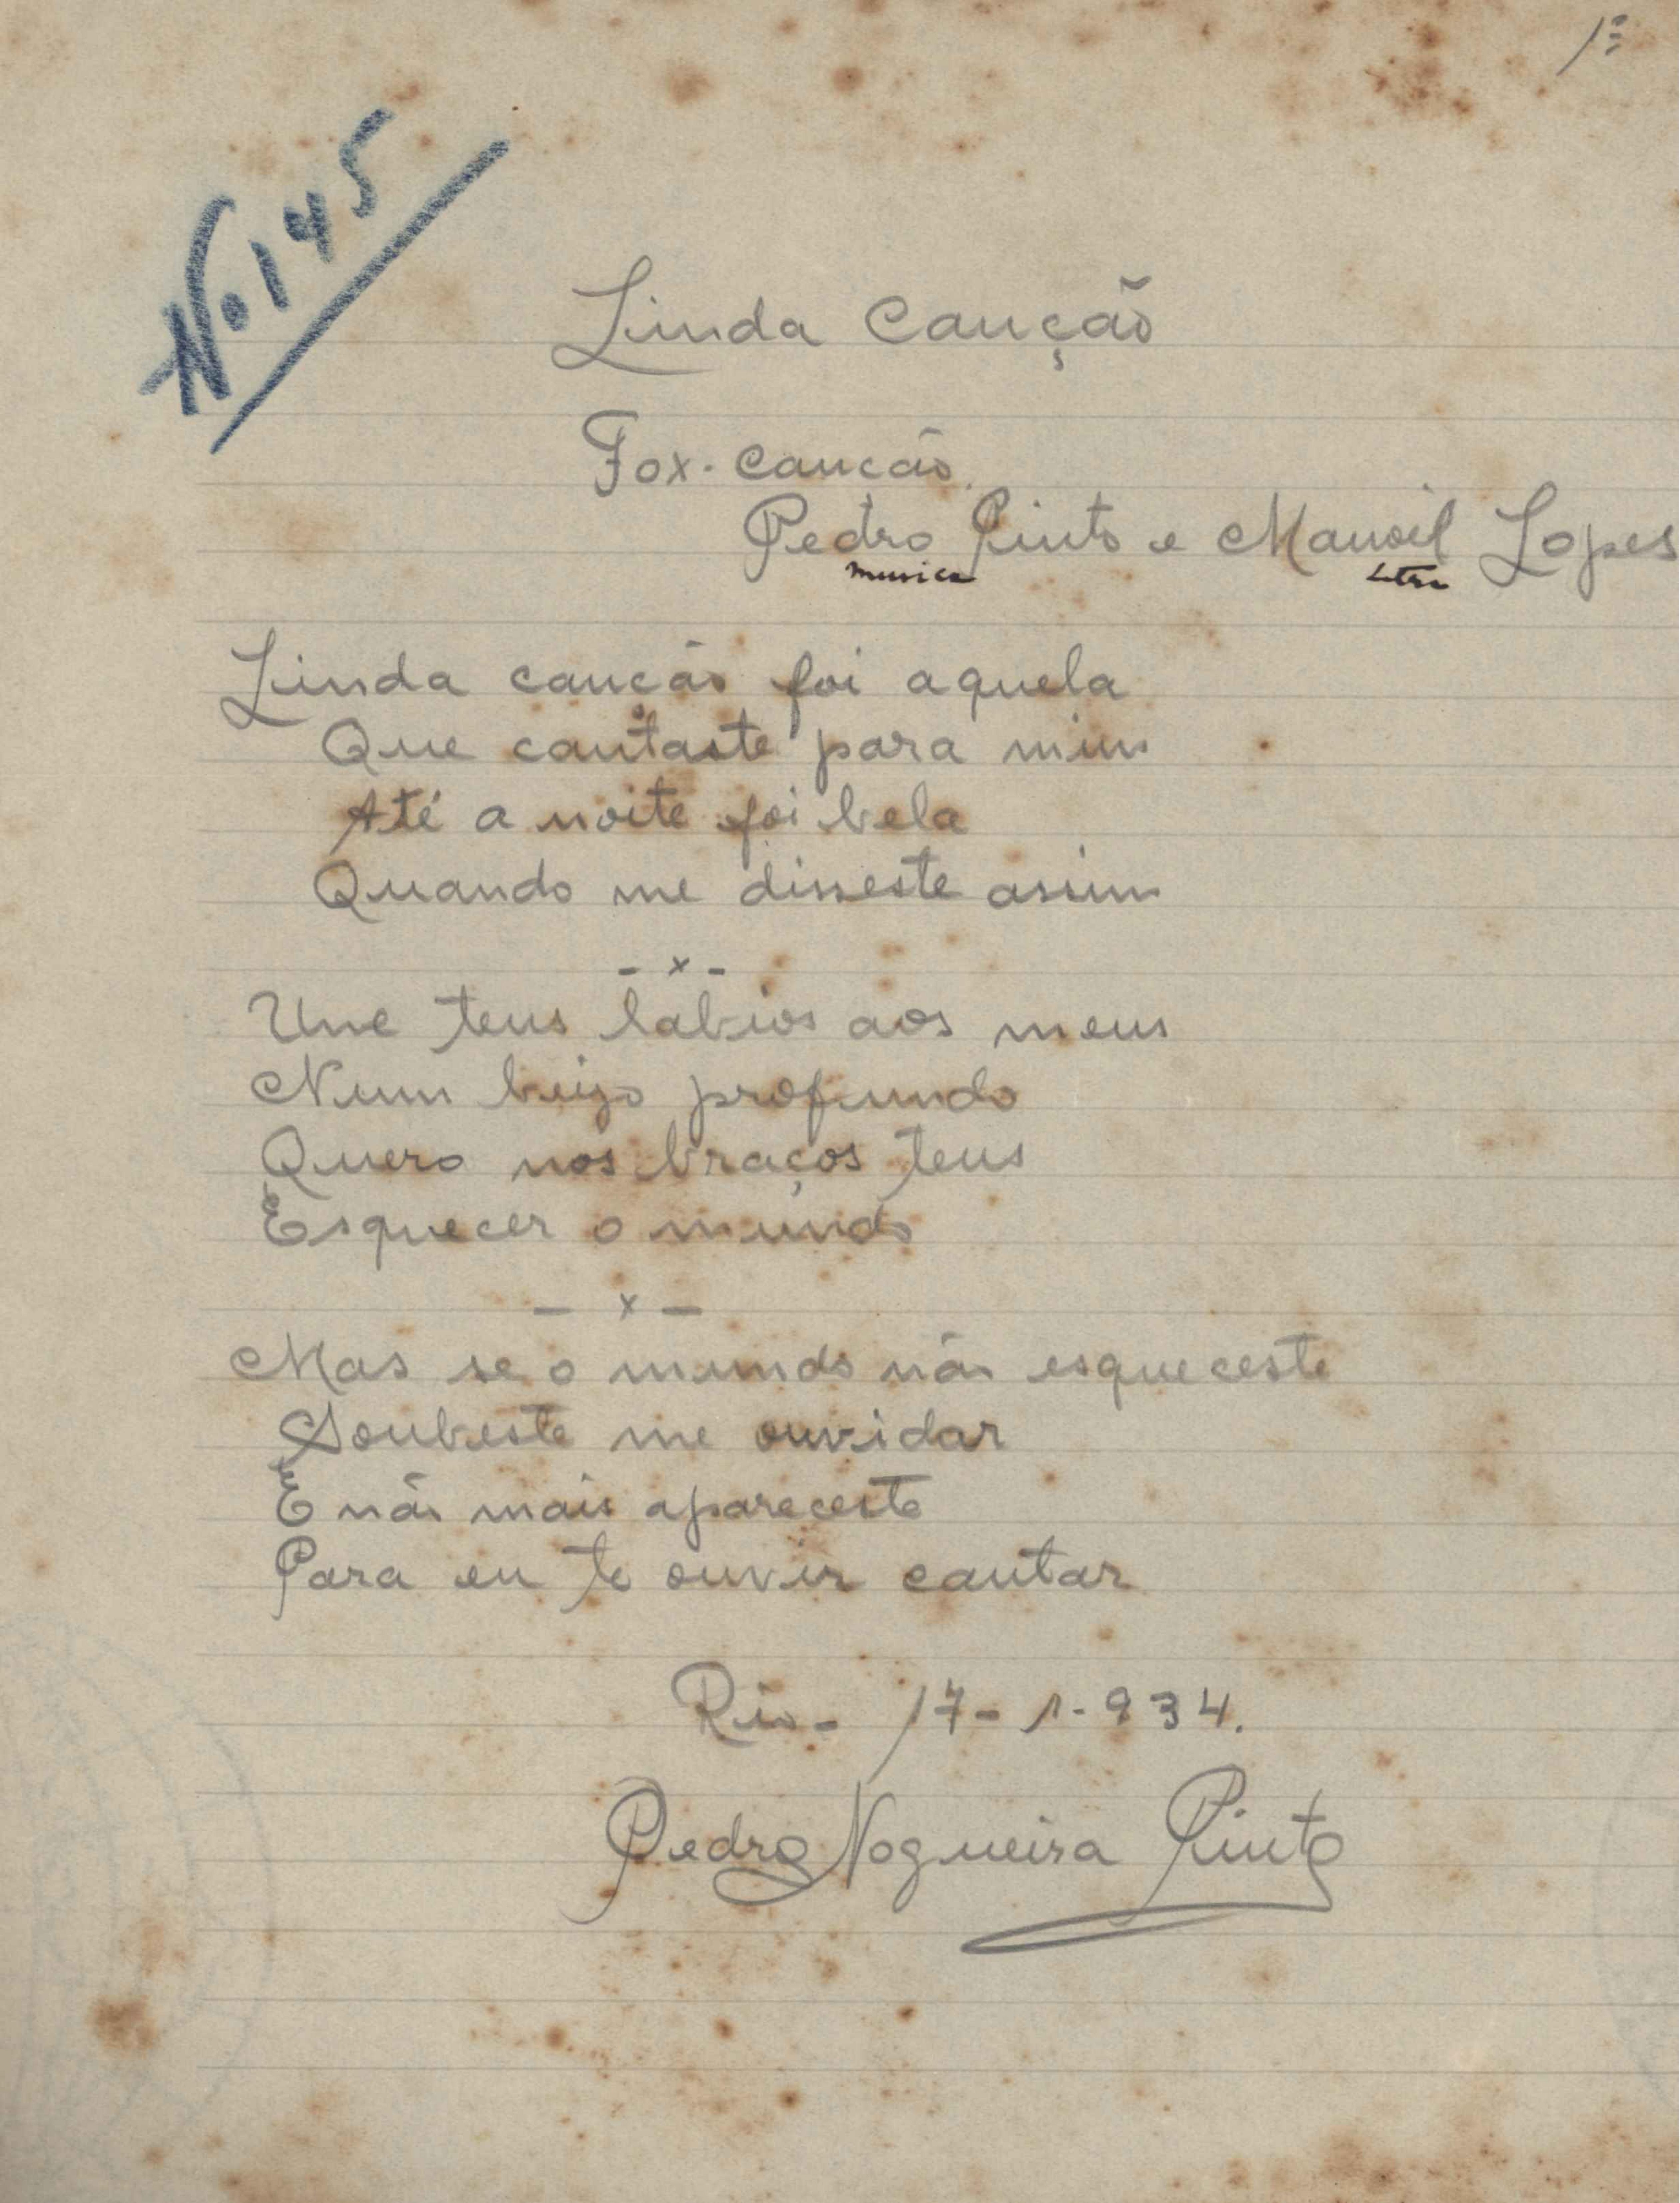 1ª
No 145
Linda Canção
Fox-Cancão.
Pedro Pinto e Manoel Lopes
musica Letra
Linda canção foi aquela
Que cantaste para mim
Até a noite foi bela
Quando me disseste assim
- x -
Une teus labios aos meus
Num beijo profundo
Quero nos braços teus
Esquecer o mundo
- x -
Mas se o mundo não esqueceste
Soubeste me ouvidar
E não mais apareceste
Para eu te ouvir cantar
Rio - 17 - 1 - 934.
Pedro Nogueira Pinto